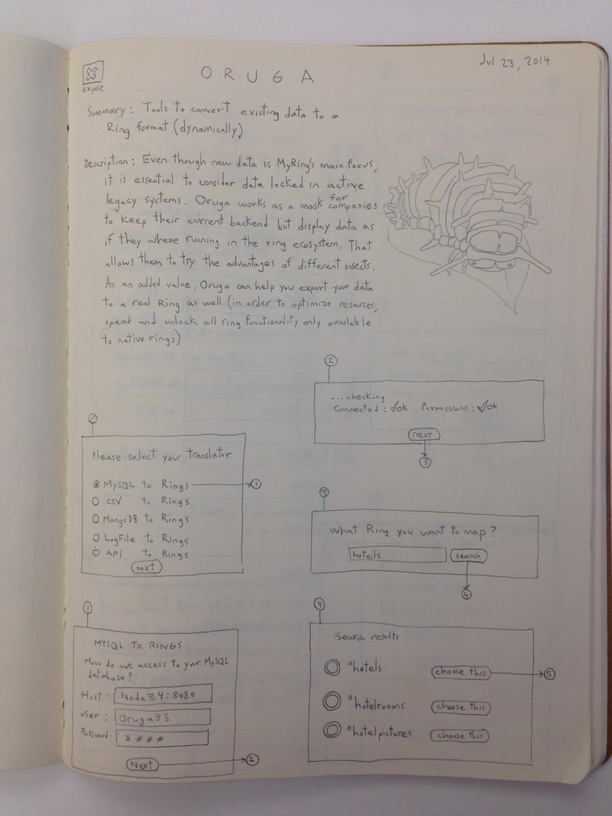 Jul 23, 2014
ORUGA
export
Summary: Tools to convert existing data to a
Ring format (dynamically)
Description: Even though new data is MyRing's main focus,
it is essential to consider data locked in active
legacy systems. Oruga works as a mask for companies
to keep their current backend but display data as
if they where running in the ring ecosystem. That
allows them to try the advantages of different insects.
As an added value, Oruga can help you export your data
to a real Ring as well (in order to optimize resources,
speed and unlock all ring functionality only available
to native rings)
0
Please select your translator
MySQL to Rings
CSV to Rings
MongoDB to Rings
LogFile to Rings
API to Rings
next
1
1
MYSQL TO RINGS
How do we access to your MySQL
database?
Host:
user: Oruga33
Password: ****
Next
2
2
...checking
Connected: ✓ok Permissions: ✓ok
next
3
3
What Ring you want to map?
hotels
search
4
4
Search results
°hotels choose this
°hotelrooms choose this
°hotelpictures choose this
5